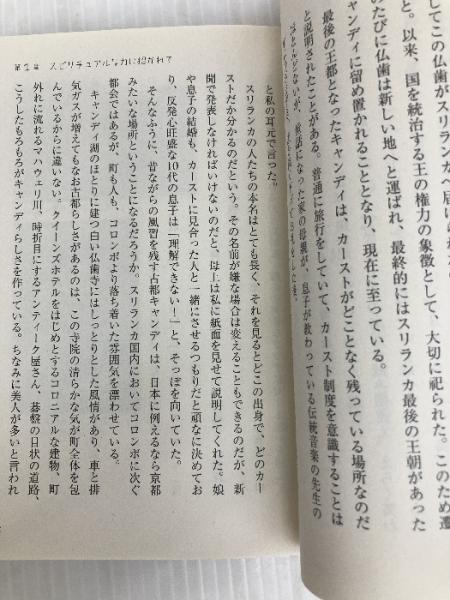 してこの仏歯がスリランカへ届けられ
と。以来、国を統治する王の権力の象徴として、大切に祀られた。このため遷
のたびに仏歯は新しい地へと運ばれ、最終的にはスリランカ最後の王朝があった
ャンディに留め置かれることとなり、現在に至っている。
最後の王都となったキャンディは、カーストがどことなく残っている場所なのだ
と説明されたことがある。普通に旅行をしていて、カースト制度を意識することは
ほとんどないが、世話になった家の母親が、息子が教わっている伝統音楽の先生の
と私の耳元で言った。
スリランカの人たちの本名はとても長く、それを見るとどこの出身で、どのカー
ストだか分かるのだという。その名前が嫌な場合は変えることもできるのだが、新
聞で発表しなければいけないのだと、母上は私に紙面を見せて説明してくれた。娘
や息子の結婚も、カーストに見合った人と一緒にさせるつもりだと頑なに決めてお
り、反発心旺盛な10代の息子は「理解できない!」と、そっぽを向いていた。
そんなふうに、昔ながらの風習を残す古都キャンディは、日本に例えるなら京都
みたいな場所ということになるだろうか。スリランカ国内においてコロンボに次ぐ
都会ではあるが、町も人も、コロンボより落ち着いた雰囲気を漂わせている。
キャンディ湖のほとりに建つ白い仏歯寺にはしっとりとした風情があり、車と排
気ガスが増えてもなお古都らしさがあるのは、この寺院の清らかな気が町全体を包
んでいるからに違いない。クイーンズホテルをはじめとするコロニアルな建物、町
外れに流れるマハウェリ川、時折目にするアンティーク屋さん、碁盤の目状の道路、
こうしたもろもろがキャンディらしさを作っている。ちなみに美人が多いと言われ
第2章 スピリチュアルな力に招かれて